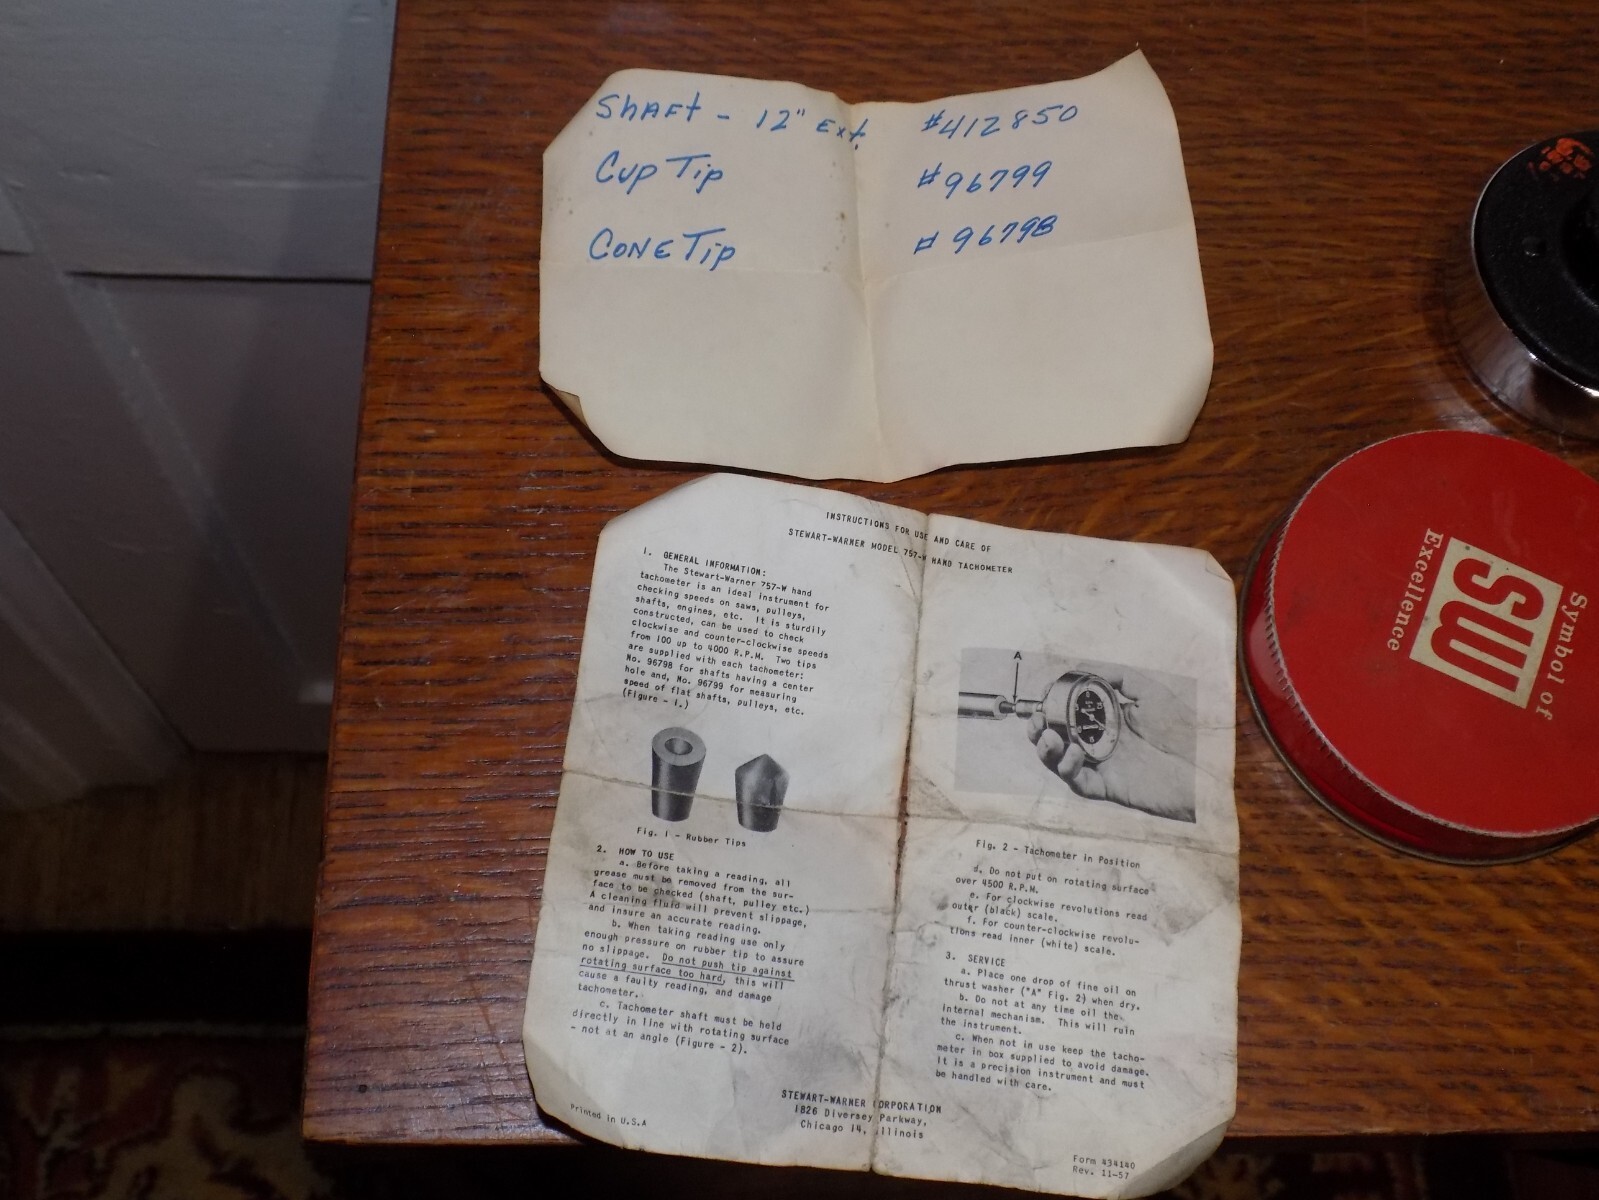 ShAFt - 12" Ext. #412850
Cup Tip #96799
CONE Tip #96798
INSTRUCTIONS FOR USE AND CARE OF
STEWART-WARNER MODEL 757-W HAND TACHOMETER
1. GENERAL INFORMATION:
The Stewart-Warner 757-W hand
tachometer is an ideal instrument for
checking speeds on saws, pulleys,
shafts, engines, etc. It is sturdily
constructed, can be used to check
clockwise and counter-clockwise speeds
from 100 up to 4000 R.P.M. Two tips
are supplied with each tachometer:
No. 96798 for shafts having a center
hole and, No. 96799 for measuring
speed of flat shafts, pulleys, etc.
(Figure - 1.)
Fig. 1 - Rubber Tips
2. HOW TO USE
a. Before taking a reading, all
grease must be removed from the sur-
face to be checked (shaft, pulley etc.)
A cleaning fluid will prevent slippage,
and insure an accurate reading.
b. When taking reading use only
enough pressure on rubber tip to assure
no slippage. Do not push tip against
rotating surface too hard, this will
cause a faulty reading, and damage
tachometer.
c. Tachometer shaft must be held
directly in line with rotating surface
- not at an angle (Figure - 2).
A
Fig. 2 - Tachometer in Position
d. Do not put on rotating surface
over 4500 R.P.M.
e. For clockwise revolutions read
outer (black) scale.
f. For counter-clockwise revolu-
tions read inner (white) scale.
3. SERVICE
a. Place one drop of fine oil on
thrust washer ("A" Fig. 2) when dry.
b. Do not at any time oil the
internal mechanism. This will ruin
the instrument.
c. When not in use keep the tacho-
meter in box supplied to avoid damage.
It is a precision instrument and must
be handled with care.
STEWART-WARNER CORPORATION
1826 Diversey Parkway,
Chicago 14, Illinois
Printed in U.S.A
Form 434140
Rev. 11-57
Symbol of
SW
Excellence